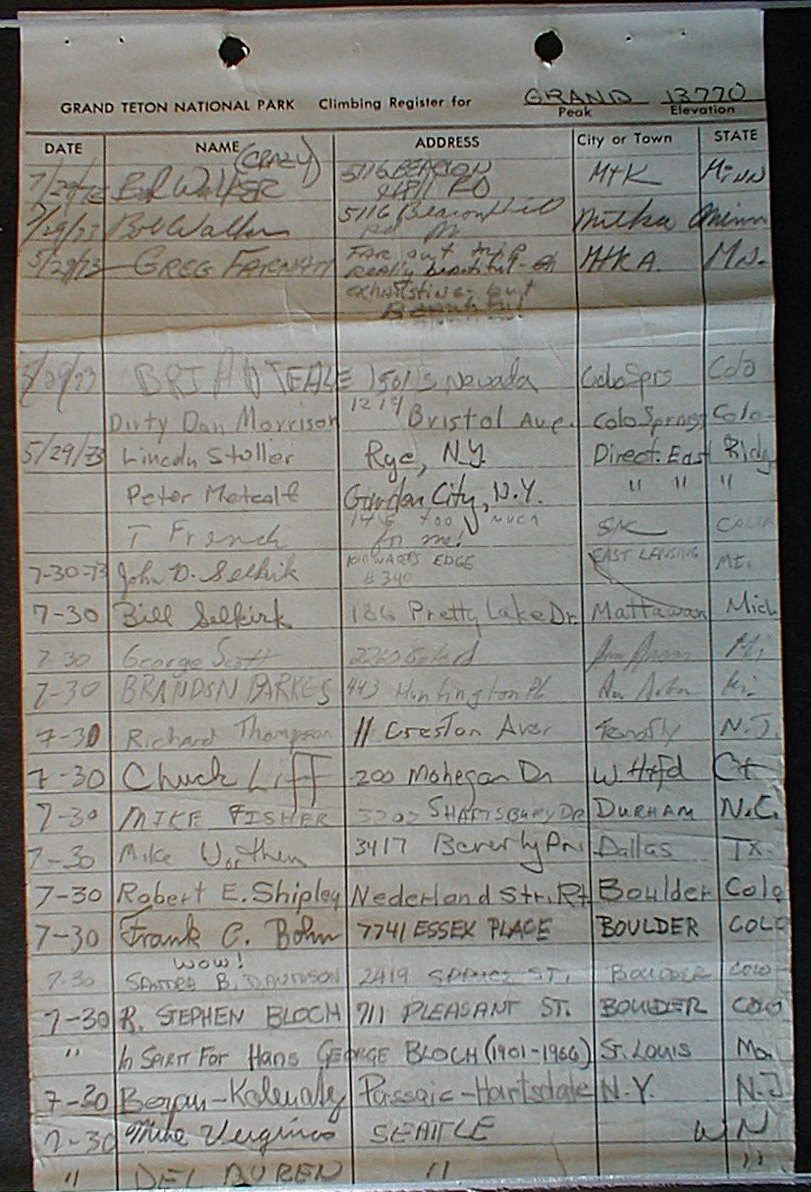 GRAND TETON NATIONAL PARK Climbing Register for GRAND 13770
Peak Elevation
DATE NAME ADDRESS City or Town STATE
(CRAZY)
7/29/73 Bob WALKER 5116 BEACON HILL RD MtK Minn
7/29/73 Bob Walker 5116 Beacon Hill Rd Mitka Minn
5/29/73 GREG FARNAM Far out trip MtKA. MN.
really beautiful-
exhausting- but
Beautiful
5/29/73 BRIAN TEALE 1501 S. Nevada Colo Sprs Colo
Dirty Dan Morrison 1219 Bristol Ave. Colo Springs Colo.
5/29/73 Lincoln Stoller Rye, N.Y. Direct East Ridge
Peter Metcalf Garden City, N.Y. " " "
T French too much SLC CALIF
for me!
7-30-73 John D. Selkirk WATERS EDGE EAST LANSING MI.
# 340
7-30 Bill Selkirk 186 Pretty Lake Dr. Mattawan Mich
7-30 George Scott 2260 Ann Arbor Mi
7-30 BRANDON PARKES 443 Huntington Pl Ann Arbor Mi
7-30 Richard Thompson 11 Creston Ave Tenafly N.J.
7-30 Chuck Liff 200 Mohegan Dr W. Htfd Ct
7-30 MIKE FISHER SHAFTSBURY DR DURHAM N.C.
7-30 Mike Worthen 3417 Beverly Dr. Dallas TX.
7-30 Robert E. Shipley Nederland Str. Rt Boulder Colo
7-30 Frank C. Bohn 7741 ESSEX PLACE BOULDER COLO
WOW!
7-30 SANDRA B. DAVIDSON 2419 SPRUCE ST. BOULDER COLO
7-30 R. STEPHEN BLOCH 711 PLEASANT ST. BOULDER COLO
" In SPIRIT FOR Hans GEORGE BLOCH (1901-1966) ST. LOUIS Mo.
7-30 Passaic-Hartsdale N.Y. N.J
7-30 Mike SEATTLE WN
" DEL " "